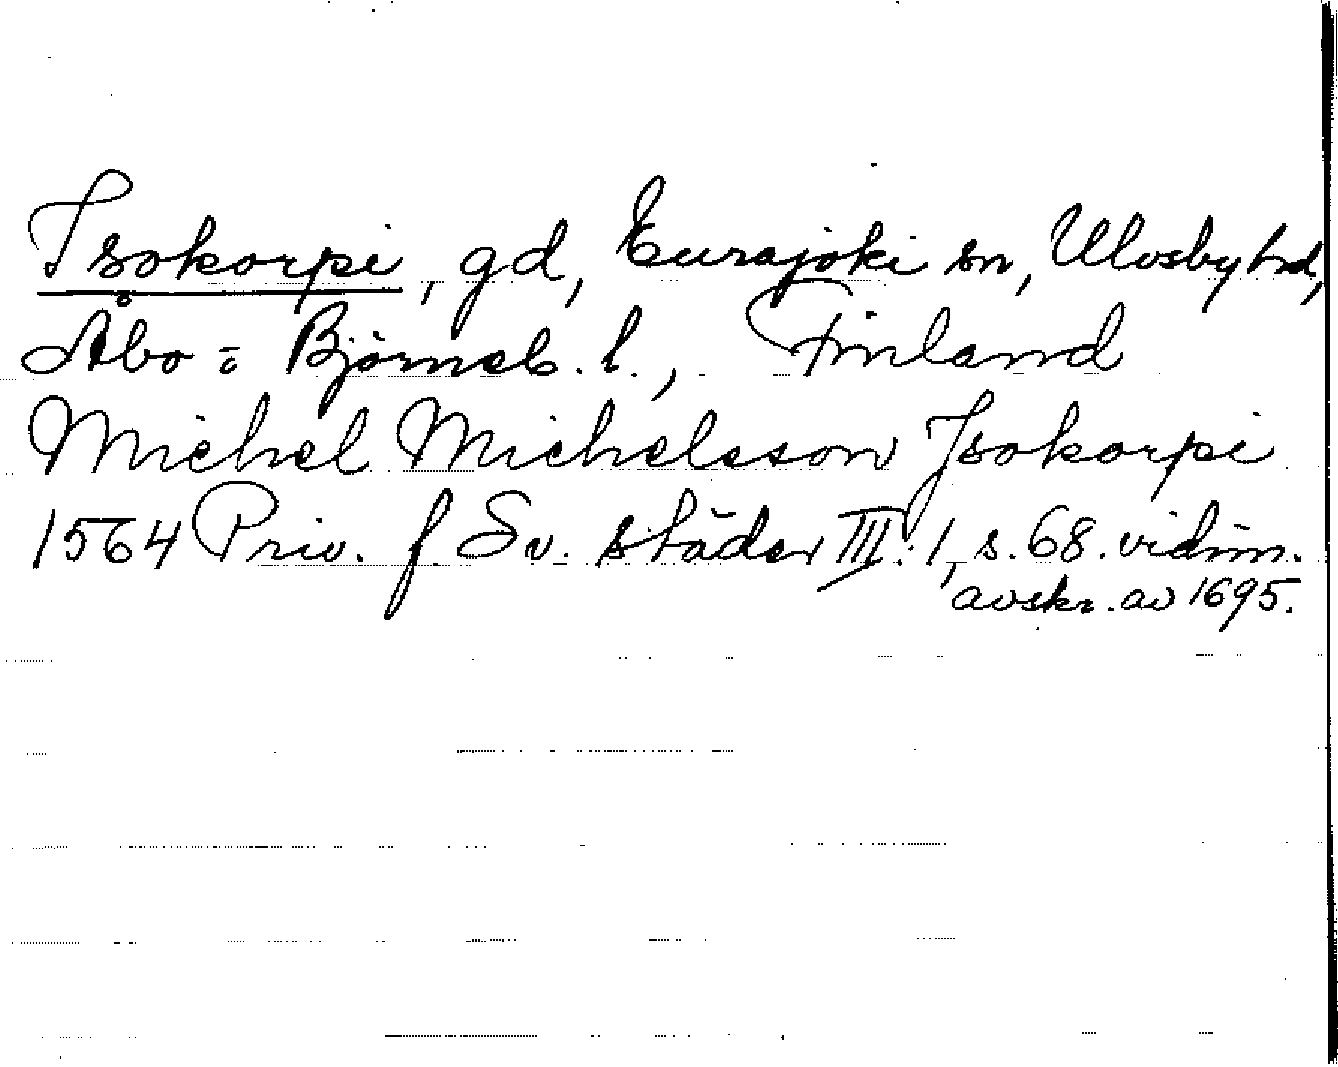 Isokorpi, gd, Eurajoki sn, Ulvsby hd,
Åbo o Björneb. l., Finland
Michel Michelsson Isokorpi
1564 Priv. f Sv. städer III:1, s. 68. vidim.
avskr. av 1695.